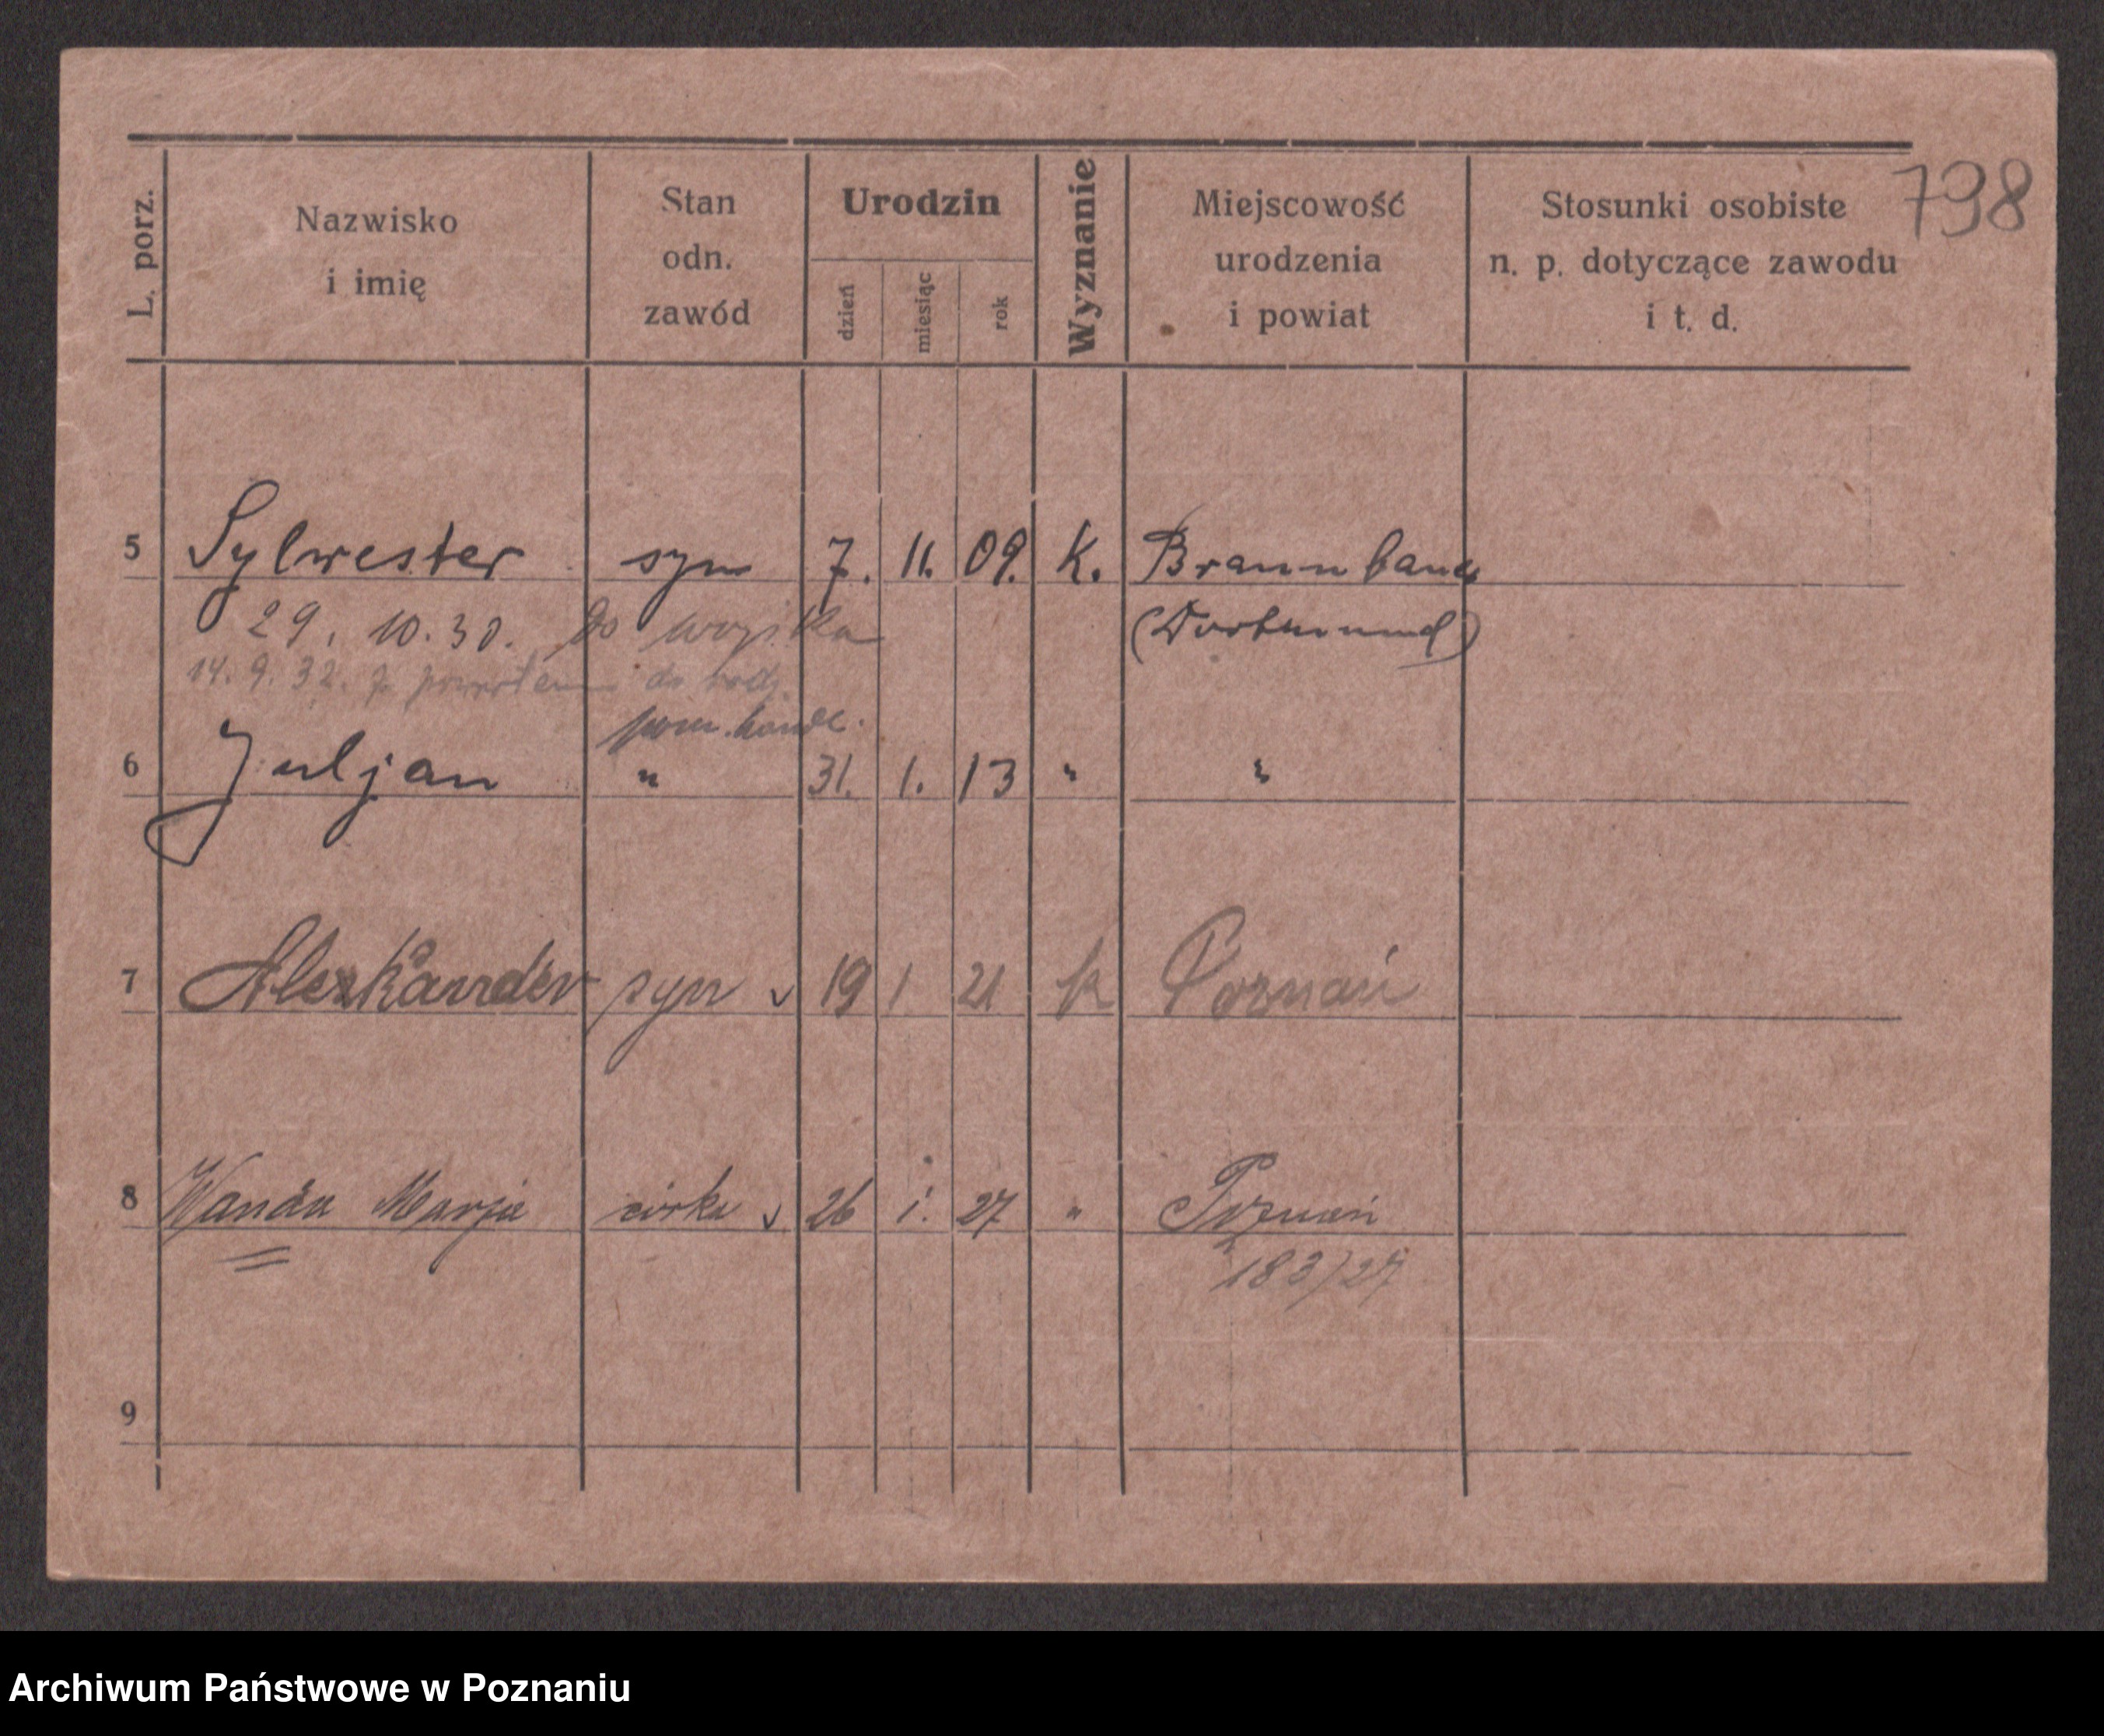 798
L. porz. Nazwisko i imię Stan odn. zawód Urodzin dzień miesiąc rok Wyznanie Miejscowość urodzenia i powiat Stosunki osobiste n. p. dotyczące zawodu i t. d.
5 Sylwester syn 7. 11. 09. K. Braunbauer
29. 10. 30. do wojska (Dortmund)
14. 9. 32. z powrotem do rodz.
pom. handl.
6 Juljan " 31. 1. 13 " "
7 Alexkander syn v 19 1 21 k Poznań
8 Wanda Marja córka v 26 1. 27 " Poznań
183/27
9
Archiwum Państwowe w Poznaniu